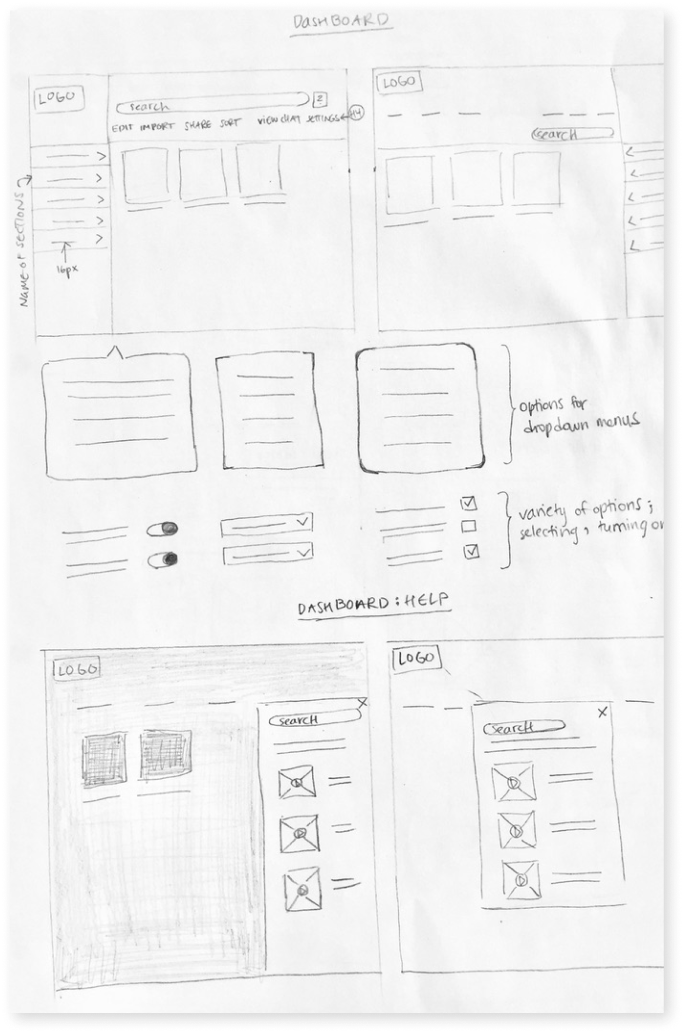 DASHBOARD
LOGO
search
EDIT IMPORT SHARE SORT VIEW CHAT SETTINGS
H4
NAME OF SECTIONS
16px
LOGO
search
options for
dropdown menus
variety of options;
selecting, turning on
DASHBOARD: HELP
LOGO
search
X
LOGO
search
X